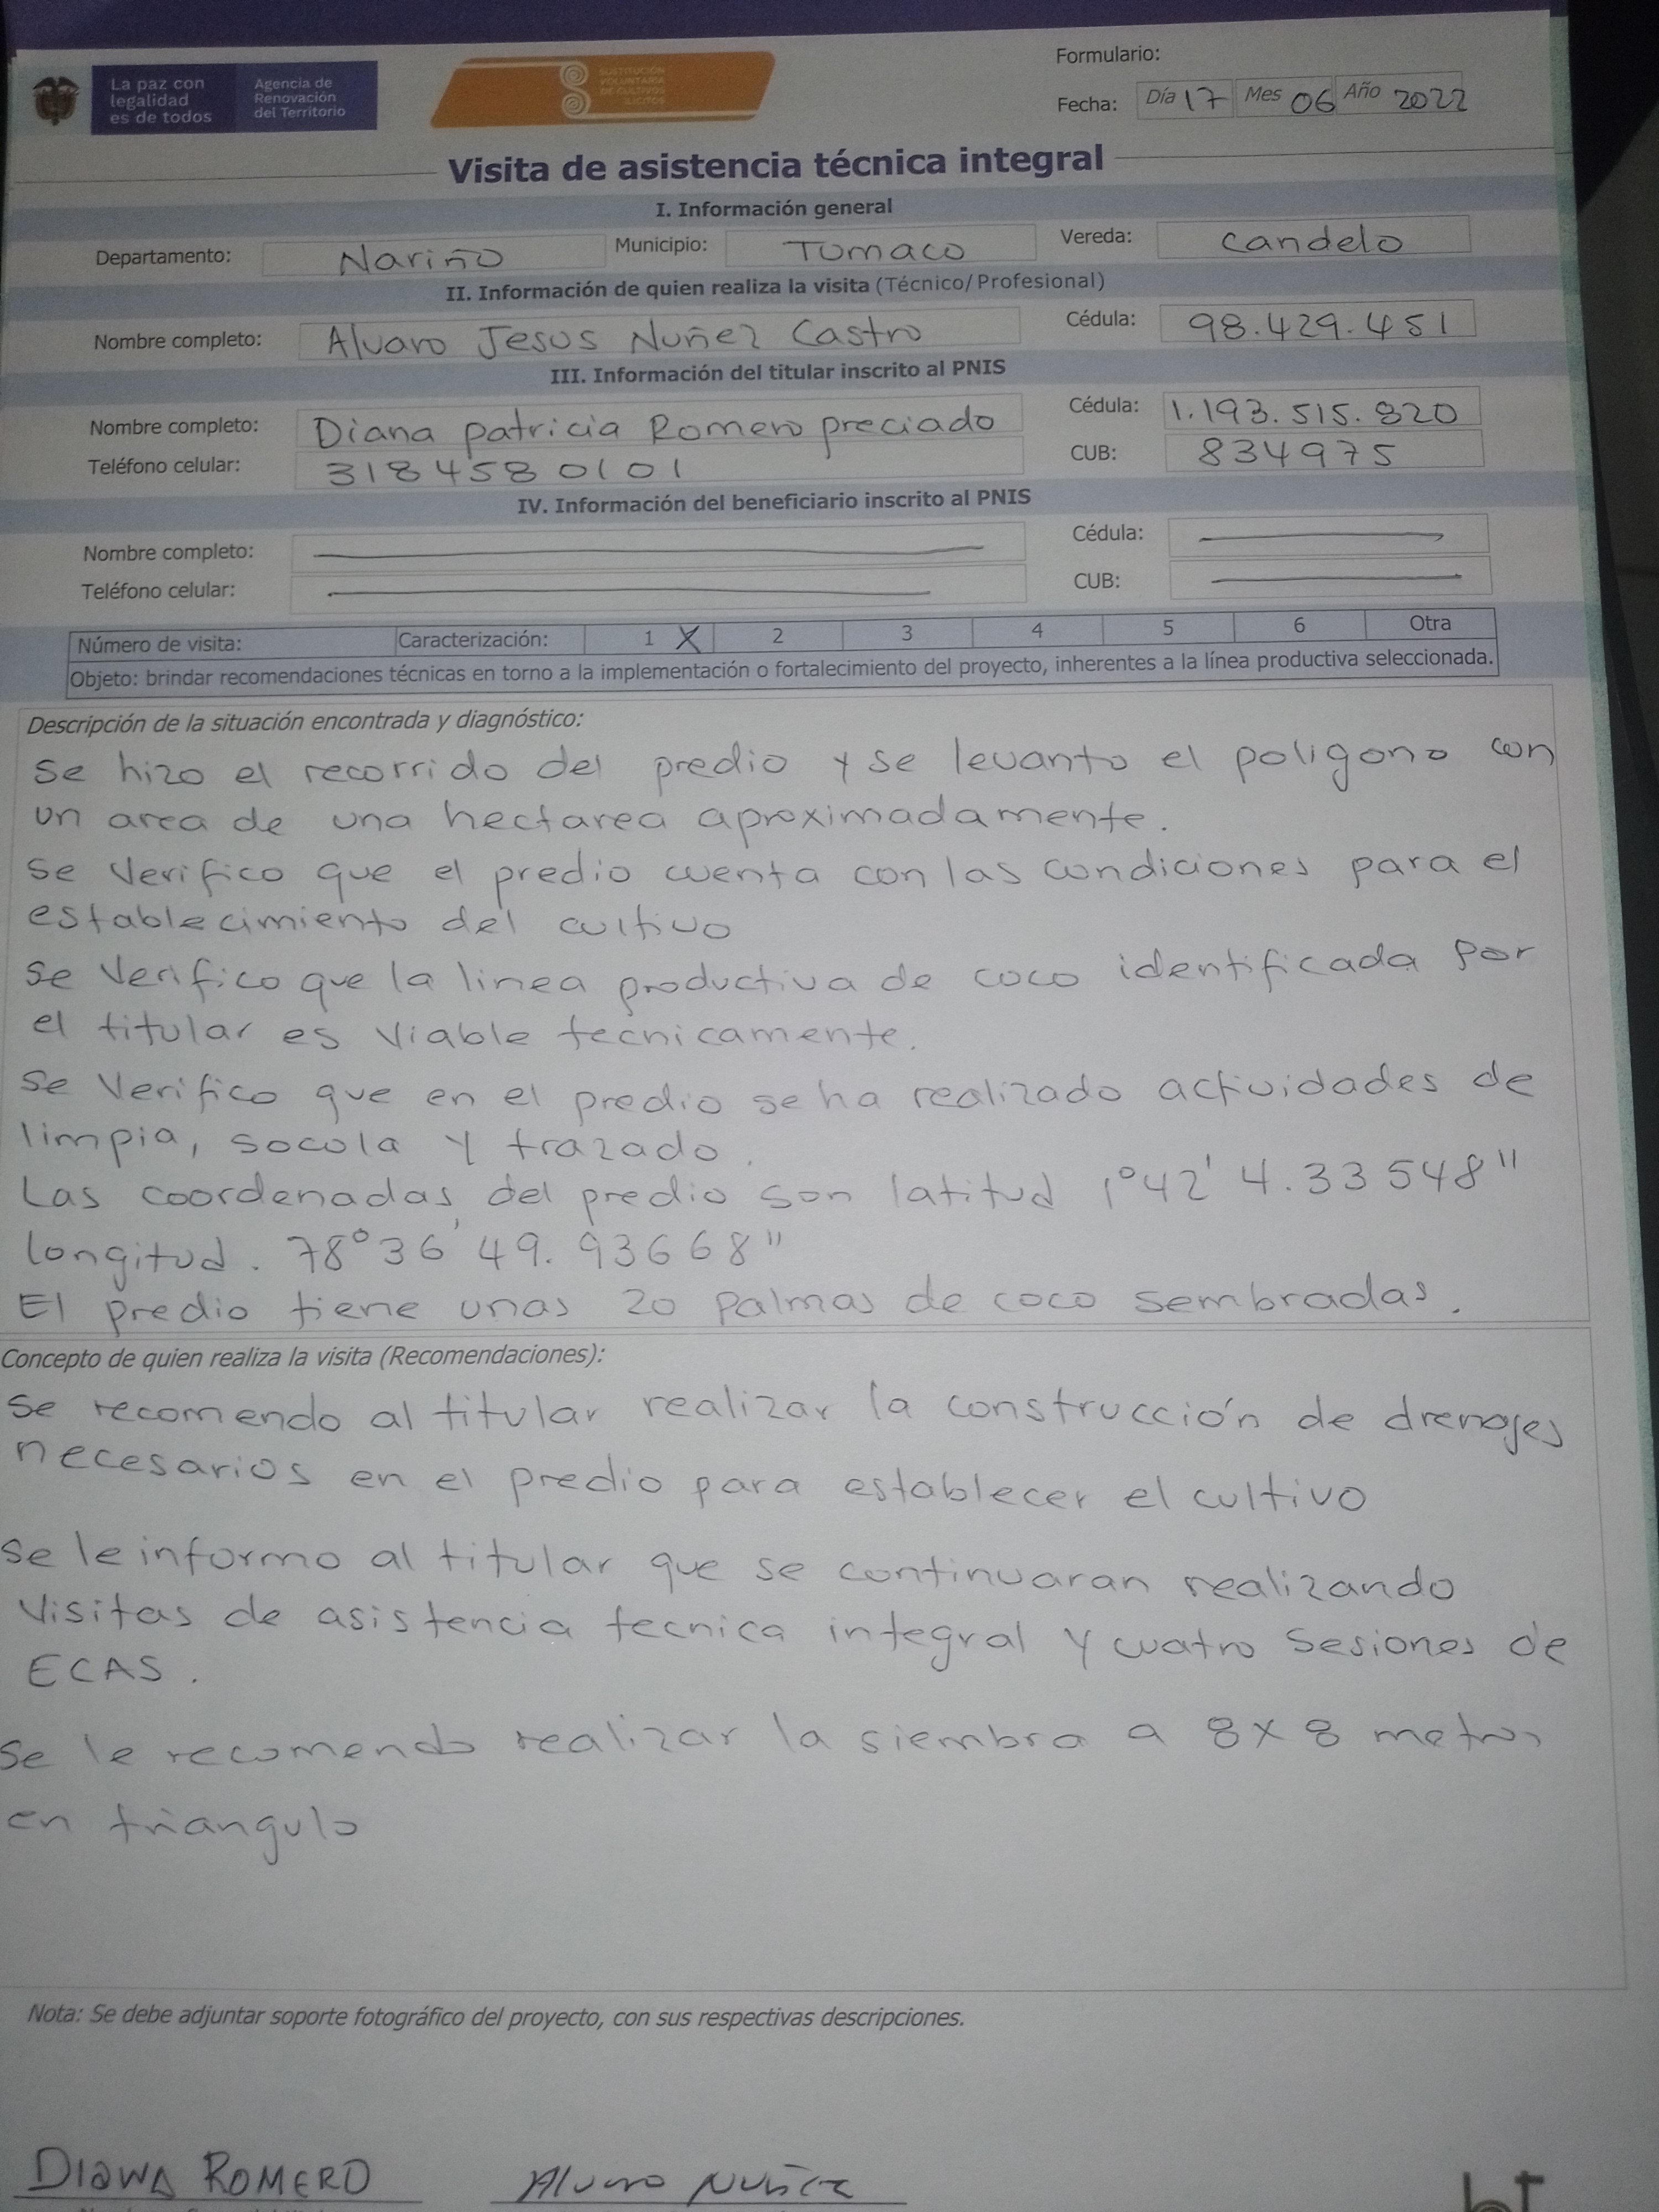 La paz con legalidad es de todos
Agencia de Renovación del Territorio
SUSTITUCIÓN VOLUNTARIA DE CULTIVOS ILÍCITOS
Formulario:
Fecha: Día 17 Mes 06 Año 2022
Visita de asistencia técnica integral
I. Información general
Departamento: Nariño Municipio: Tumaco Vereda: Candelo
II. Información de quien realiza la visita (Técnico/Profesional)
Nombre completo: Alvaro Jesus Nuñez Castro Cédula: 98.429.451
III. Información del titular inscrito al PNIS
Nombre completo: Diana patricia Romero preciado Cédula: 1.193.515.820
Teléfono celular: 318 458 0101 CUB: 834975
IV. Información del beneficiario inscrito al PNIS
Nombre completo: Cédula:
Teléfono celular: CUB:
Número de visita: Caracterización: 1 X 2 3 4 5 6 Otra
Objeto: brindar recomendaciones técnicas en torno a la implementación o fortalecimiento del proyecto, inherentes a la línea productiva seleccionada.
Descripción de la situación encontrada y diagnóstico:
Se hizo el recorrido del predio y se levanto el poligono con
un area de una hectarea aproximadamente.
Se Verifico que el predio cuenta con las condiciones para el
establecimiento del cultivo
Se Verifico que la linea productiva de coco identificada por
el titular es viable tecnicamente.
Se Verifico que en el predio se ha realizado actividades de
limpia, socola y trazado.
Las coordenadas del predio son latitud 1°42' 4.33548"
longitud. 78°36' 49.93668"
El predio tiene unas 20 palmas de coco sembradas.
Concepto de quien realiza la visita (Recomendaciones):
Se recomendo al titular realizar la construcción de drenajes
necesarios en el predio para establecer el cultivo
Se le informo al titular que se continuaran realizando
Visitas de asistencia tecnica integral y cuatro Sesiones de
ECAS.
Se le recomendo realizar la siembra a 8x8 metros
en triangulo
Nota: Se debe adjuntar soporte fotográfico del proyecto, con sus respectivas descripciones.
DIANA ROMERO Alvaro Nuñez